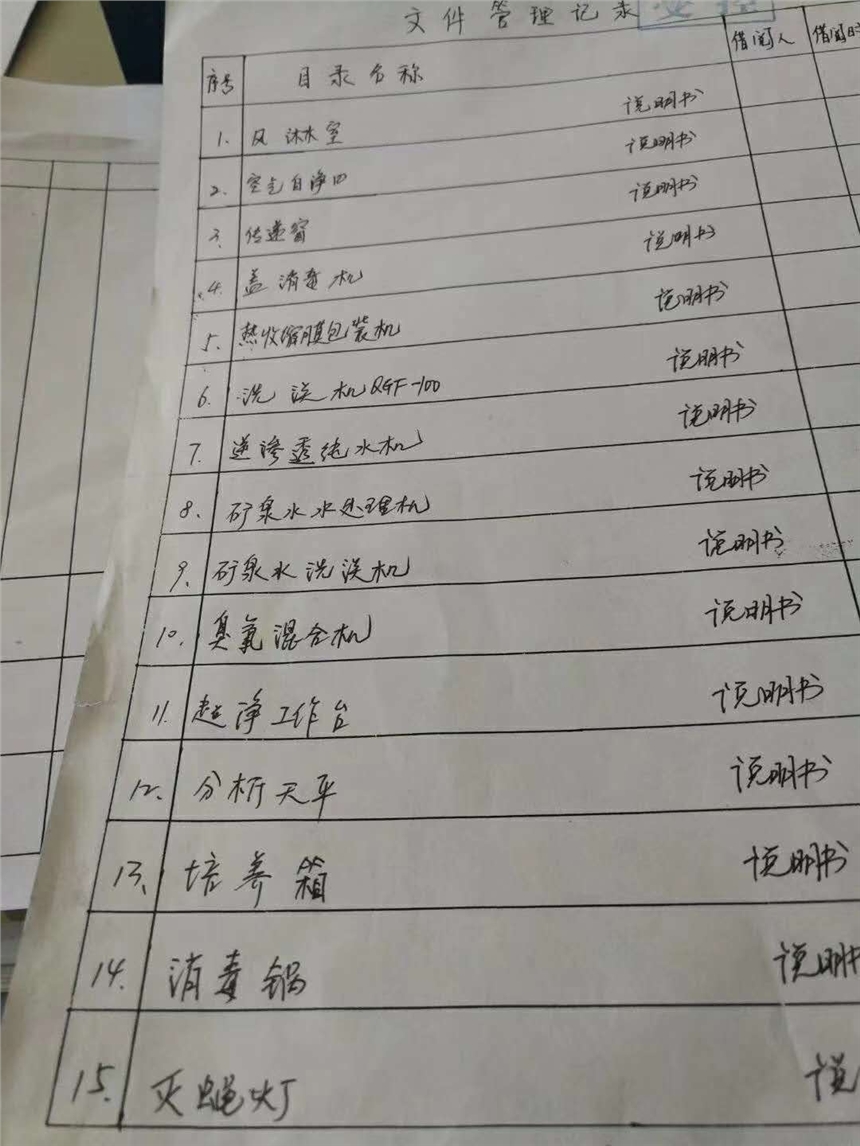 文件管理记录 受控
序号 目录名称 借阅人 借阅日
1. 风淋室 说明书
2. 空气自净口 说明书
3. 传递窗 说明书
4. 盖消毒机 说明书
5. 热收缩膜包装机 说明书
6. 洗涤机QGF-100 说明书
7. 逆渗透纯水机 说明书
8. 矿泉水水处理机 说明书
9. 矿泉水洗涤机 说明书
10. 臭氧混合机 说明书
11. 超净工作台 说明书
12. 分析天平 说明书
13. 培养箱 说明书
14. 消毒锅 说明书
15. 灭蝇灯 说